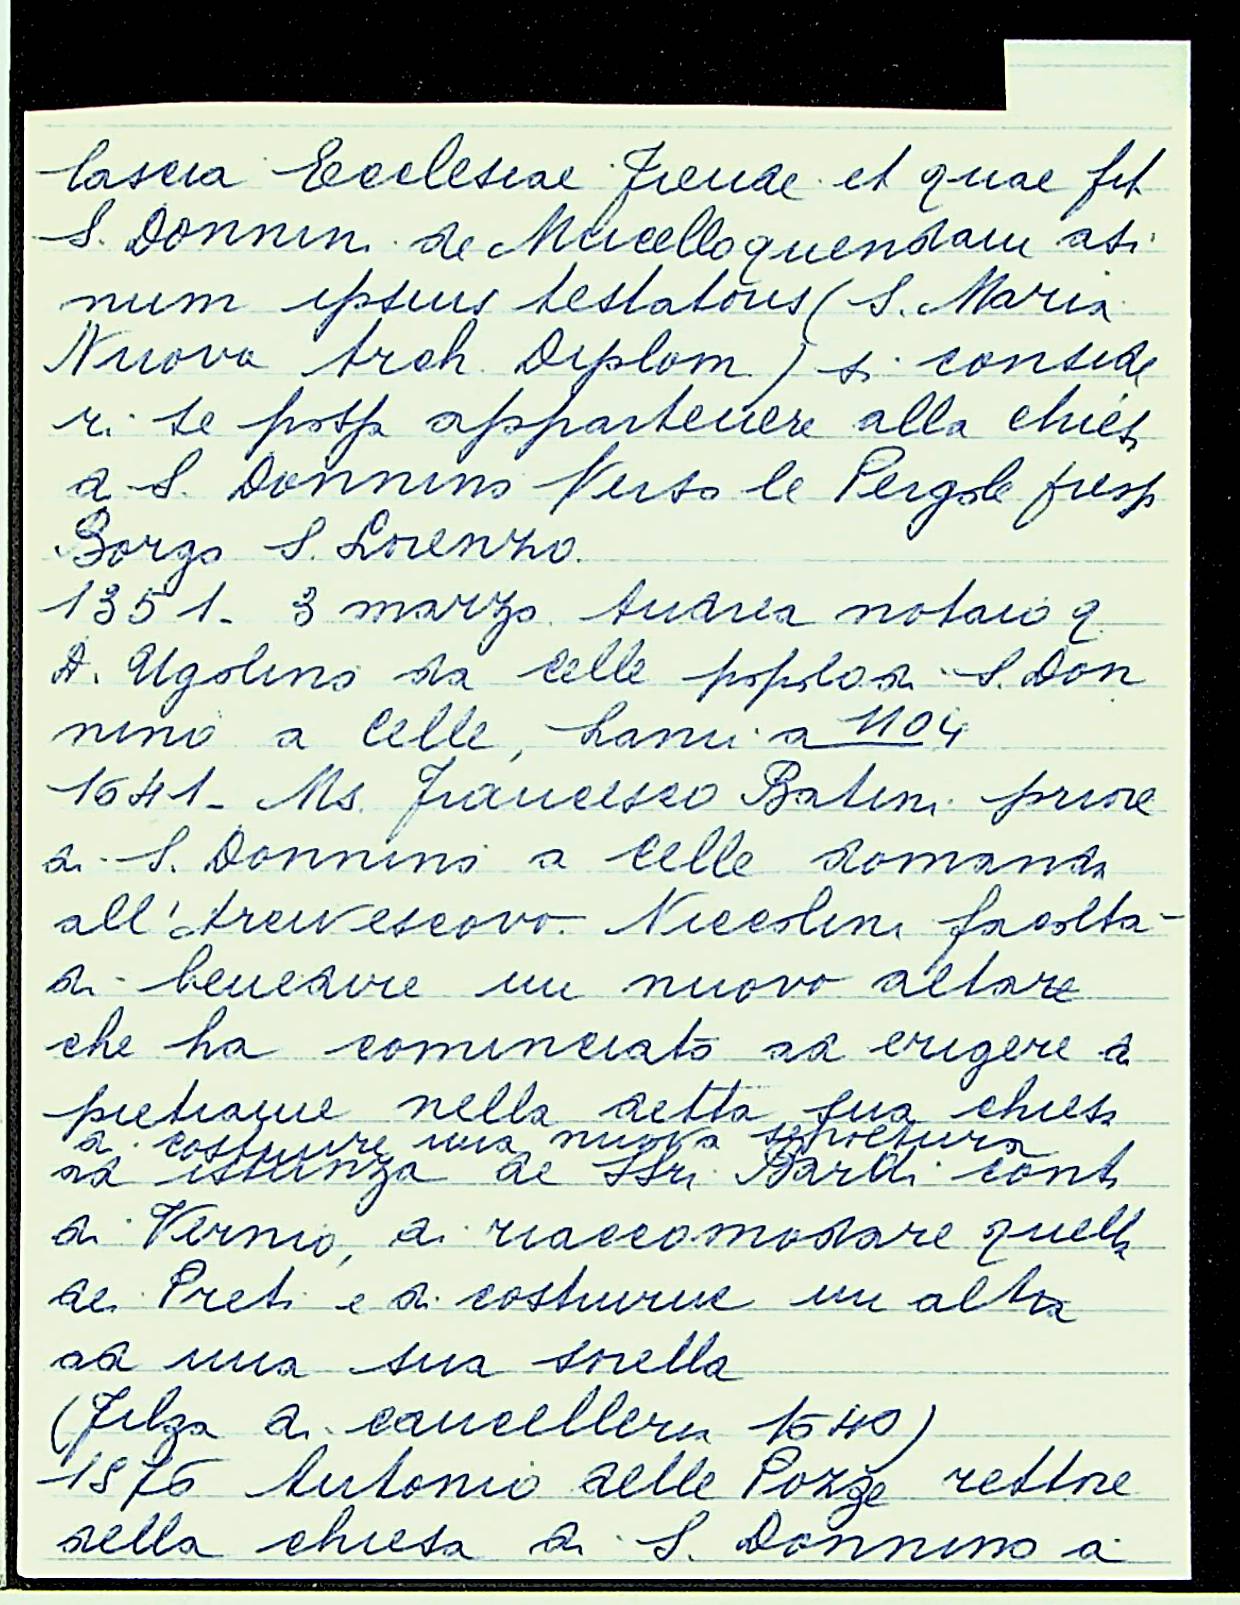 lascia Ecclesiae et quae fit
S. Donnini de Mucello quendam asi
num ipsius testatoris (S. Maria
Nuova Arch. Diplom.) si conside
ri se possa appartenere alla chiesa
di S. Donnino Verso le Pergole presso
Borgo S. Lorenzo.
1351 - 3 marzo. Andrea notaio q.
D. Ugolino da Celle popolo di S. Don
nino a Celle, Lami a 1104
1641 - Ms. Francesco Batini priore
di S. Donnino a Celle domanda
all'Arcivescovo Niccolini facoltà
di benedire un nuovo altare
che ha cominciato ad erigere di
pietrame nella detta sua chiesa
di costruire una nuova sepoltura
ad istanza de SSri Bardi conti
di Vernio, di riaccomodare quella
dei Preti e di costruirne un altra
ad una sua sorella
(Filza di cancelleria 1640)
Antonio delle Pozze rettore
della chiesa di S. Donnino a